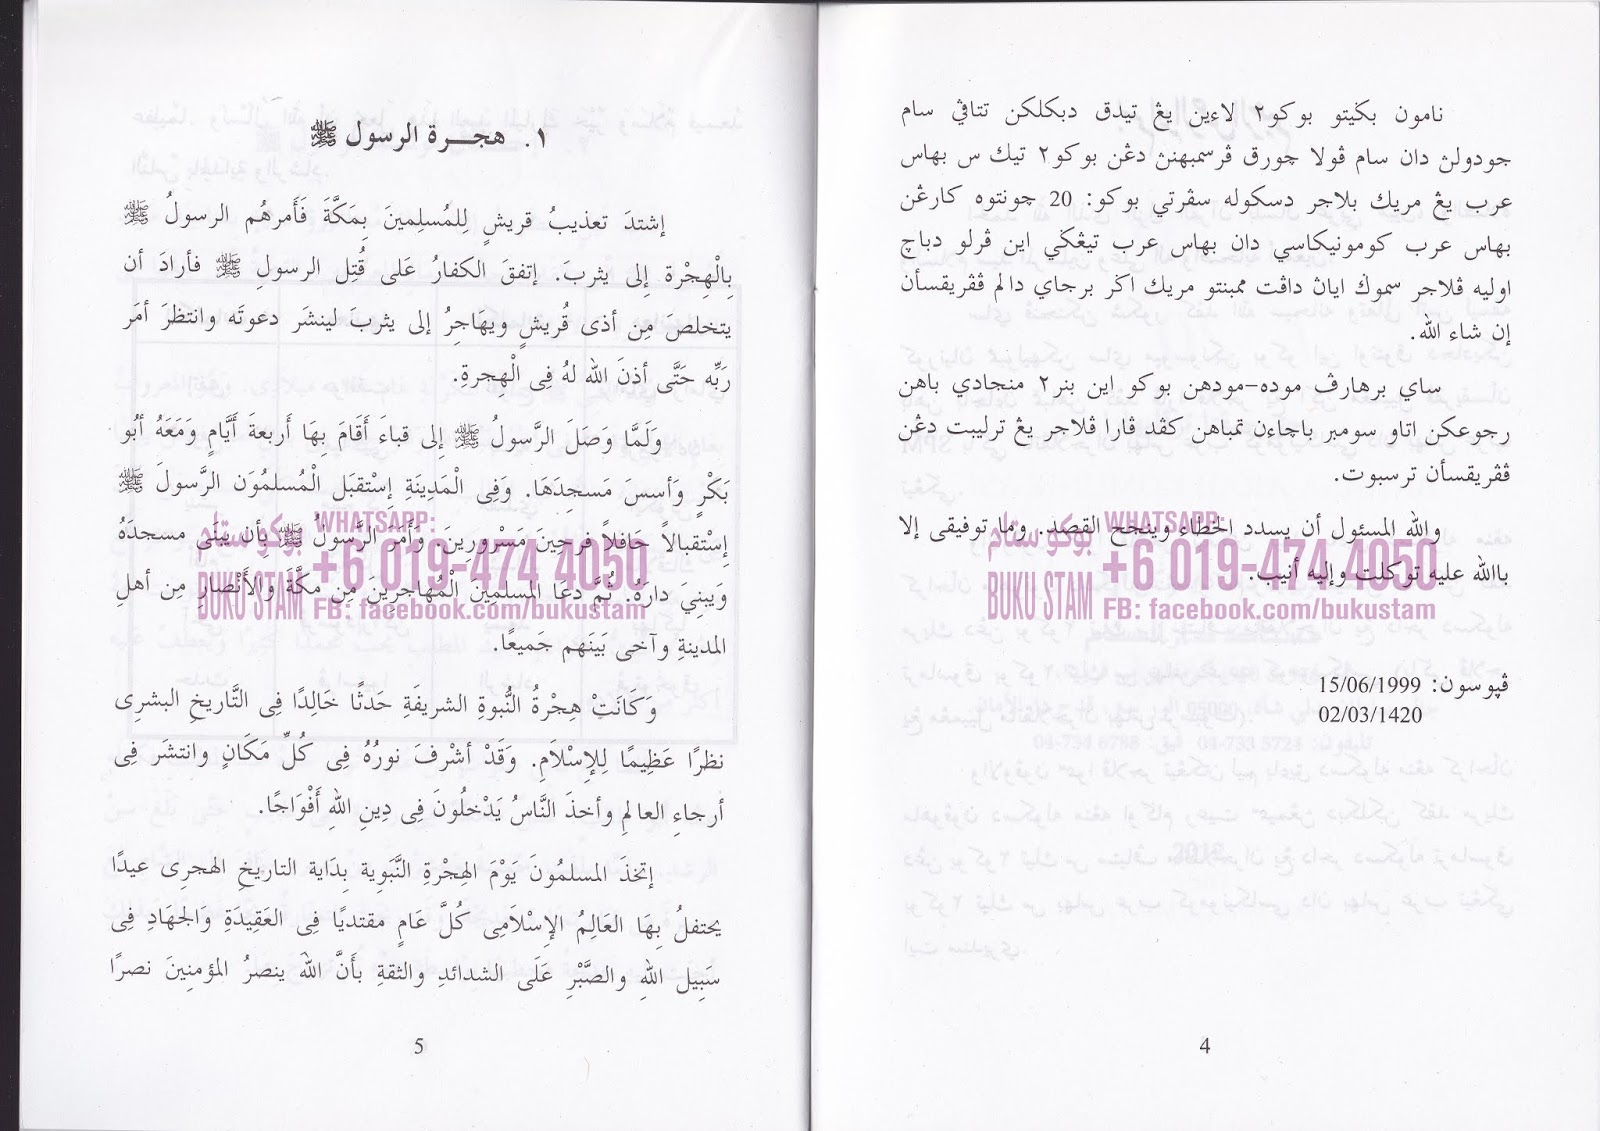 نامون بݢيتو بوكو٢ لاءين يڠ تيدق دبكلكن تتاڤي سام
جودولن دان سام ڤولا چورق ڤرسمبهنڽ دڠن بوكو٢ تيك س بهاس
عرب يڠ مريك بلاجر دسكوله سڤرتي بوكو: 20 چونتوه كارڠن
بهاس عرب كومونيكاسي دان بهاس عرب تيڠݢي اين ڤرلو دباچ
اوليه ڤلاجر سموݢ اياڽ داڤت ممبنتو مريك اكر برجاي دالم ڤڤريقسأن
إن شاء الله.
ساي برهارڤ موده-مودهن بوكو اين بنر٢ منجادي باهن
رجوعكن اتاو سومبر باچاءن تمباهن كڤد ڤارا ڤلاجر يڠ ترليبت دڠن
ڤڤريقسأن ترسبوت.
والله المسئول أن يسدد الخطاء وينجح القصد. وما توفيقى إلا
باالله عليه توكلت وإليه أنيب.
ڤڽوسون: 15/06/1999
02/03/1420
4
بوكو ستام
BUKU STAM
WHATSAPP:
+6 019-474 4050
FB: facebook.com/bukustam
١. هجـــرة الرسول ﷺ
إشتدَ تعذيبُ قريشٍ لِلمُسلِمينَ بِمَكَّةَ فَأَمرهُم الرسولُ ﷺ
بِالْهِجْرة إلى يثربَ. إتفقَ الكفارُ عَلى قُتِل الرسولِ ﷺ فأرادَ أن
يتخلصَ مِن أذى قُريشٍ ويهَاجِرُ إلى يثربَ لينشَر دعوتَه وانتظرَ أمَر
رَبِّه حَتَّى أذنَ الله لهُ فِى الْهِجرةِ.
وَلَمَّا وَصَلَ الرَّسولُ ﷺ إلى قباءَ أَقَامَ بِهَا أَربعةَ أَيَّامٍ وَمَعَهُ أَبُو
بَكْرٍ وَأسسَ مَسجِدَهَا. وَفِى الْمَدِينَةِ إِسْتقبَل الْمُسلمُون الرَّسولَ ﷺ
إِسْتقبالاً حَافلاً فرحِينَ مَسْرورِينَ. وَأَمَرَ الرَّسولُ ﷺ بأن يبنَى مسجدَهُ
وَيبنِيَ دارَهُ. ثُمَّ دعَا المسلمِينَ الْمُهَاجرِينَ مِن مكَّةَ وَالأَنْصارِ مِن أهلِ
المدينةِ وآخى بَينَهم جَميعًا.
وَكَانَتْ هِجْرةُ النُّبوةِ الشريفَةِ حَدثًا خَالِدًا فِى التَّاريخِ البشرِى
نظرًا عَظِيمًا لِلإِسْلاَمِ. وَقَدْ أشْرفَ نورُهُ فِى كُلِّ مَكَانٍ وانتشَر فِى
أرجاءِ العالمِ وأخذَ النَّاسُ يَدْخلُونَ فِى دِينِ اللهِ أَفْوَاجًا.
إتخذَ المسلمُونَ يَوْمَ الهِجْرةِ النَّبَوِية بِدَاية التاريخِ الهجرِى عيدًا
يحتفلُ بِهَا العَالِمُ الإِسْلاَمِى كُلَّ عَامٍ مقتديًا فِى العَقِيدَةِ وَالجِهَادِ فِى
سَبِيل اللهِ والصَّبْرِ عَلَى الشدائدِ والثقةِ بأَنَّ اللهَ ينصرُ المؤمنِينَ نصرًا
5
بوكو ستام
BUKU STAM
WHATSAPP:
+6 019-474 4050
FB: facebook.com/bukustam